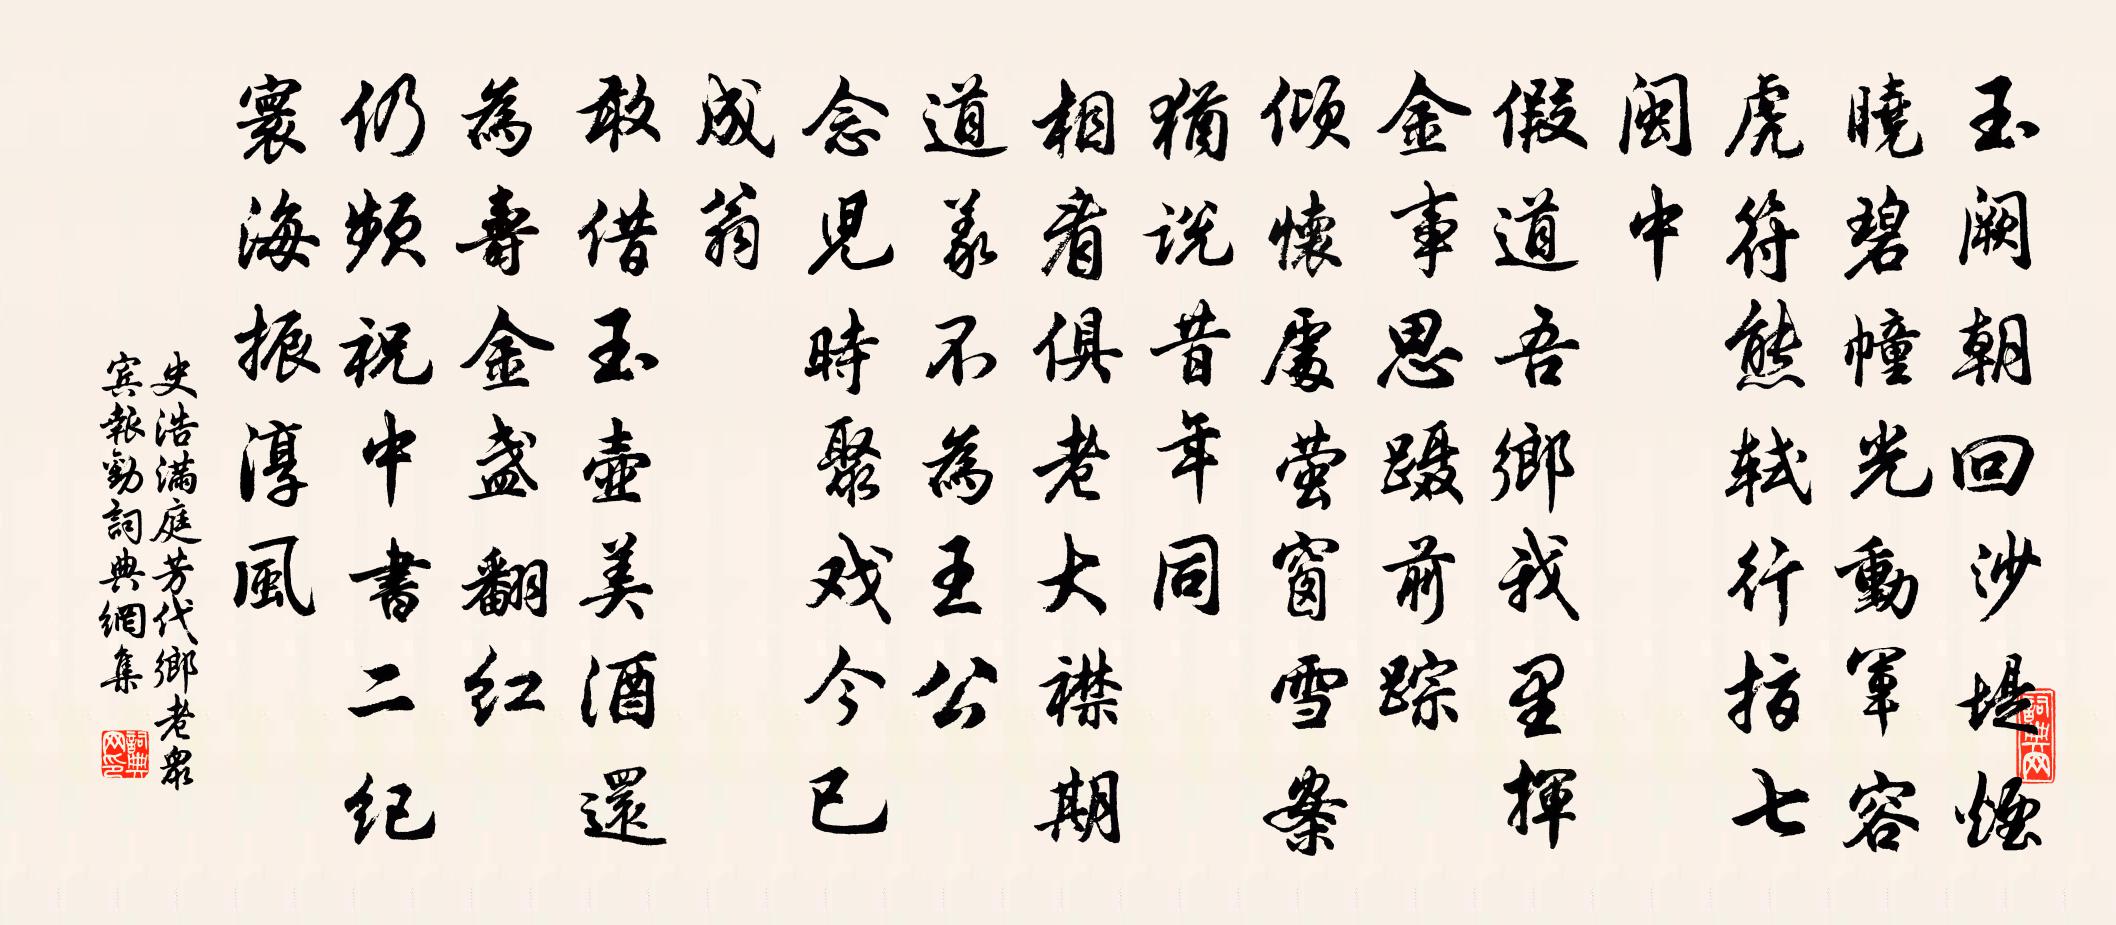 玉阙朝回沙堤烟
曉碧幢光動軍容
虎符熊轼行指七
闽中
假道吾鄉我里揮
金事思蹑前踪
倾懷處萤窗雪案
猶说昔年同
相看俱老大襟期
道義不為王公
念兒時聚戏今已
成翁
敢借玉壶美酒還
為壽金盏翻红
仍频祝中書二纪
寰海振淳風
史浩满庭芳代鄉老眾
宾報勤詞典網集
詞典网
詞典网印